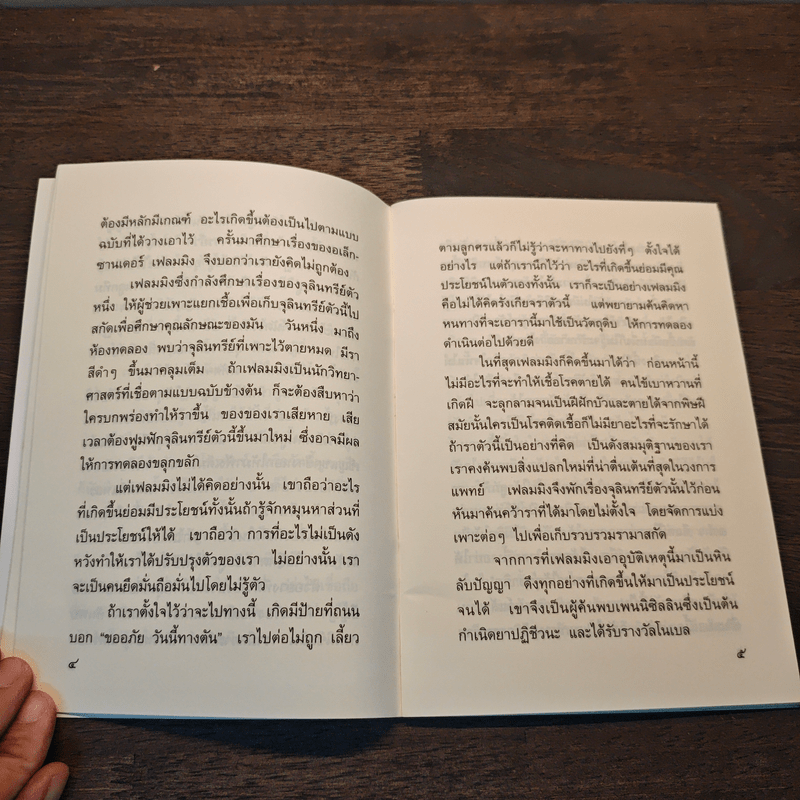 ต้องมีหลักมีเกณฑ์ อะไรเกิดขึ้นต้องเป็นไปตามแบบ
ฉบับที่ได้วางเอาไว้ ครั้นมาศึกษาเรื่องของอเล็ก-
ซานเดอร์ เฟลมมิง จึงบอกว่าเรายังคิดไม่ถูกต้อง
เฟลมมิงซึ่งกำลังศึกษาเรื่องของจุลินทรีย์ตัว
หนึ่ง ให้ผู้ช่วยเพาะแยกเชื้อเพื่อเก็บจุลินทรีย์ตัวนี้ไป
สกัดเพื่อศึกษาคุณลักษณะของมัน วันหนึ่ง มาถึง
ห้องทดลอง พบว่าจุลินทรีย์ที่เพาะไว้ตายหมด มีรา
สีดำๆ ขึ้นมาคลุมเต็ม ถ้าเฟลมมิงเป็นนักวิทยา-
ศาสตร์ที่เชื่อตามแบบฉบับข้างต้น ก็จะต้องสืบหาว่า
ใครบกพร่องทำให้ราขึ้น ของของเราเสียหาย เสีย
เวลาต้องฟูมฟักจุลินทรีย์ตัวนี้ขึ้นมาใหม่ ซึ่งอาจมีผล
ให้การทดลองขลุกขลัก
แต่เฟลมมิงไม่ได้คิดอย่างนั้น เขาถือว่าอะไร
ที่เกิดขึ้นย่อมมีประโยชน์ทั้งนั้นถ้ารู้จักหมุนหาส่วนที่
เป็นประโยชน์ให้ได้ เขาถือว่า การที่อะไรไม่เป็นดัง
หวังทำให้เราได้ปรับปรุงตัวของเรา ไม่อย่างนั้น เรา
จะเป็นคนยึดมั่นถือมั่นไปโดยไม่รู้ตัว
ถ้าเราตั้งใจไว้ว่าจะไปทางนี้ เกิดมีป้ายที่ถนน
บอก “ขออภัย วันนี้ทางตัน” เราไปต่อไม่ถูก เลี้ยว
๔
ตามลูกศรแล้วก็ไม่รู้ว่าจะหาทางไปยังที่ๆ ตั้งใจได้
อย่างไร แต่ถ้าเรานึกไว้ว่า อะไรที่เกิดขึ้นย่อมมีคุณ
ประโยชน์ในตัวเองทั้งนั้น เราก็จะเป็นอย่างเฟลมมิง
คือไม่ได้คิดรังเกียจราตัวนี้ แต่พยายามค้นคิดหา
หนทางที่จะเอารานี้มาใช้เป็นวัตถุดิบ ให้การทดลอง
ดำเนินต่อไปด้วยดี
ในที่สุดเฟลมมิงก็คิดขึ้นมาได้ว่า ก่อนหน้านี้
ไม่มีอะไรที่จะทำให้เชื้อโรคตายได้ คนไข้เบาหวานที่
เกิดฝี จะลุกลามจนเป็นฝีฝักบัวและตายได้จากพิษฝี
สมัยนั้นใครเป็นโรคติดเชื้อก็ไม่มียาอะไรที่จะรักษาได้
ถ้าราตัวนี้เป็นอย่างที่คิด เป็นดังสมมุติฐานของเรา
เราคงค้นพบสิ่งแปลกใหม่ที่น่าตื่นเต้นที่สุดในวงการ
แพทย์ เฟลมมิงจึงพักเรื่องจุลินทรีย์ตัวนั้นไว้ก่อน
หันมาค้นคว้าราที่ได้มาโดยไม่ตั้งใจ โดยจัดการแบ่ง
เพาะต่อๆ ไปเพื่อเก็บรวบรวมรามาสกัด
จากการที่เฟลมมิงเอาอุบัติเหตุนี้มาเป็นหิน
ลับปัญญา ดึงทุกอย่างที่เกิดขึ้นให้มาเป็นประโยชน์
จนได้ เขาจึงเป็นผู้ค้นพบเพนนิซิลลินซึ่งเป็นต้น
กำเนิดยาปฏิชีวนะ และได้รับรางวัลโนเบล
๕